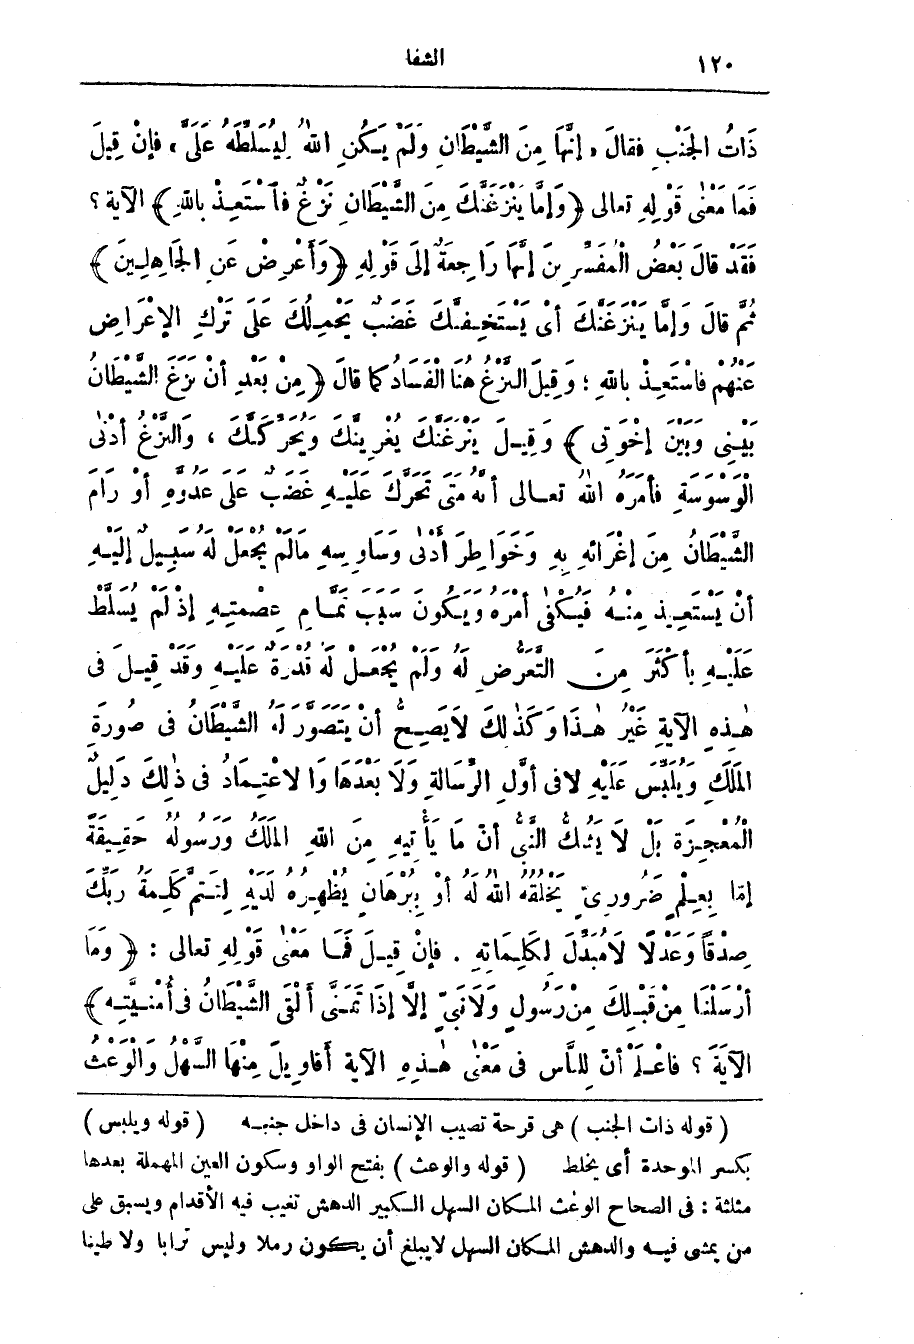 ١٢٠ الشفا
ذَاتُ الجَنْبِ فقالَ « إنَّهَا مِنَ الشَّيْطَانِ وَلَمْ يَكُنِ اللهُ لِيُسَلِّطَهُ عَلَىَّ » فإنْ قِيلَ
فَمَا مَعْنَى قَوْلِهِ تعالى ﴿ وَإِمَّا يَنْزَغَنَّكَ مِنَ الشَّيْطَانِ نَزْغٌ فَاسْتَعِذْ باللهِ ﴾ الآيةَ ؟
فَقَدْ قالَ بَعْضُ الْمُفَسِّرِينَ إنَّهَا رَاجِعَةٌ إلَى قَوْلِهِ ﴿ وَأَعْرِضْ عَنِ الجَاهِلِينَ ﴾
ثُمَّ قالَ وَإِمَّا يَنْزَغَنَّكَ أىْ يَسْتَخِفَّنَّكَ غَضَبٌ يَحْمِلُكَ عَلَى تَرْكِ الإعْرَاضِ
عَنْهُمْ فَاسْتَعِذْ باللهِ ؛ وَقِيلَ النَّزْغُ هُنَا الْفَسَادُ كما قالَ ﴿ مِنْ بَعْدِ أنْ نَزَغَ الشَّيْطَانُ
بَيْنِى وَبَيْنَ إخْوَتِى ﴾ وَقِيلَ يَنْزَغَنَّكَ يُغْرِيَنَّكَ وَيُحَرِّكَنَّكَ ، وَالنَّزْغُ أدْنَى
الْوَسْوَسَةِ فأمَرَهُ اللهُ تعالى أنَّهُ مَتَى تَحَرَّكَ عَلَيْهِ غَضَبٌ عَلَى عَدُوِّهِ أوْ رَامَ
الشَّيْطَانُ مِنَ إغْرَائِهِ بِهِ وَخَوَاطِرَ أدْنَى وَسَاوِسِهِ مَالَمْ يُجْعَلْ لَهُ سَبِيلٌ إلَيْهِ
أنْ يَسْتَعِيذَ مِنْهُ فَيُكْفَى أمْرَهُ وَيَكُونَ سَبَبَ تَمَامِ عِصْمَتِهِ إذْ لَمْ يُسَلَّطْ
عَلَيْهِ بأكْثَرَ مِنَ التَّعَرُّضِ لَهُ وَلَمْ يُجْعَلْ لَهُ قُدْرَةٌ عَلَيْهِ وَقَدْ قِيلَ فى
هٰذِهِ الآيَةِ غَيْرُ هٰذَا وَكَذٰلِكَ لَا يَصِحُّ أنْ يَتَصَوَّرَ لَهُ الشَّيْطَانُ فى صُورَةِ
المَلَكِ وَيُلَبِّسَ عَلَيْهِ لا فى أوَّلِ الرِّسَالَةِ وَلَا بَعْدَهَا وَالاعْتِمَادُ فى ذٰلِكَ دَلِيلُ
الْمُعْجِزَةِ بَلْ لَا يَشُكُّ النَّبِىُّ أنَّ مَا يَأْتِيهِ مِنَ اللهِ المَلَكُ وَرَسُولُهُ حَقِيقَةً
إمَّا بِعِلْمٍ ضَرُورِىٍّ يَخْلُقُهُ اللهُ لَهُ أوْ بِبُرْهَانٍ يُظْهِرُهُ لَدَيْهِ لِتَتِمَّ كَلِمَةُ رَبِّكَ
صِدْقاً وَعَدْلًا لَا مُبَدِّلَ لِكَلِمَاتِهِ . فإنْ قِيلَ فَمَا مَعْنَى قَوْلِهِ تعالى : ﴿ وَمَا
أرْسَلْنَا مِنْ قَبْلِكَ مِنْ رَسُولٍ وَلَا نَبِىٍّ إلَّا إذَا تَمَنَّى ألْقَى الشَّيْطَانُ فى أُمْنِيَّتِهِ ﴾
الآيَةَ ؟ فاعْلَمْ أنَّ لِلنَّاسِ فى مَعْنَى هٰذِهِ الآيةِ أقاوِيلَ مِنْهَا السَّهْلُ وَالْوَعْثُ
( قوله ذات الجنب ) هى قرحة تصيب الإنسان فى داخل جنبه ( قوله ويلبس )
بكسر الموحدة أى يخلط ( قوله والوعث ) بفتح الواو وسكون العين المهملة بعدها
مثلثة : فى الصحاح الوعث المكان السهل الكبير الدهش تغيب فيه الأقدام ويسبق على
من يمشى فيه والدهش المكان السهل لايبلغ أن يكون رملا وليس ترابا ولا طينا